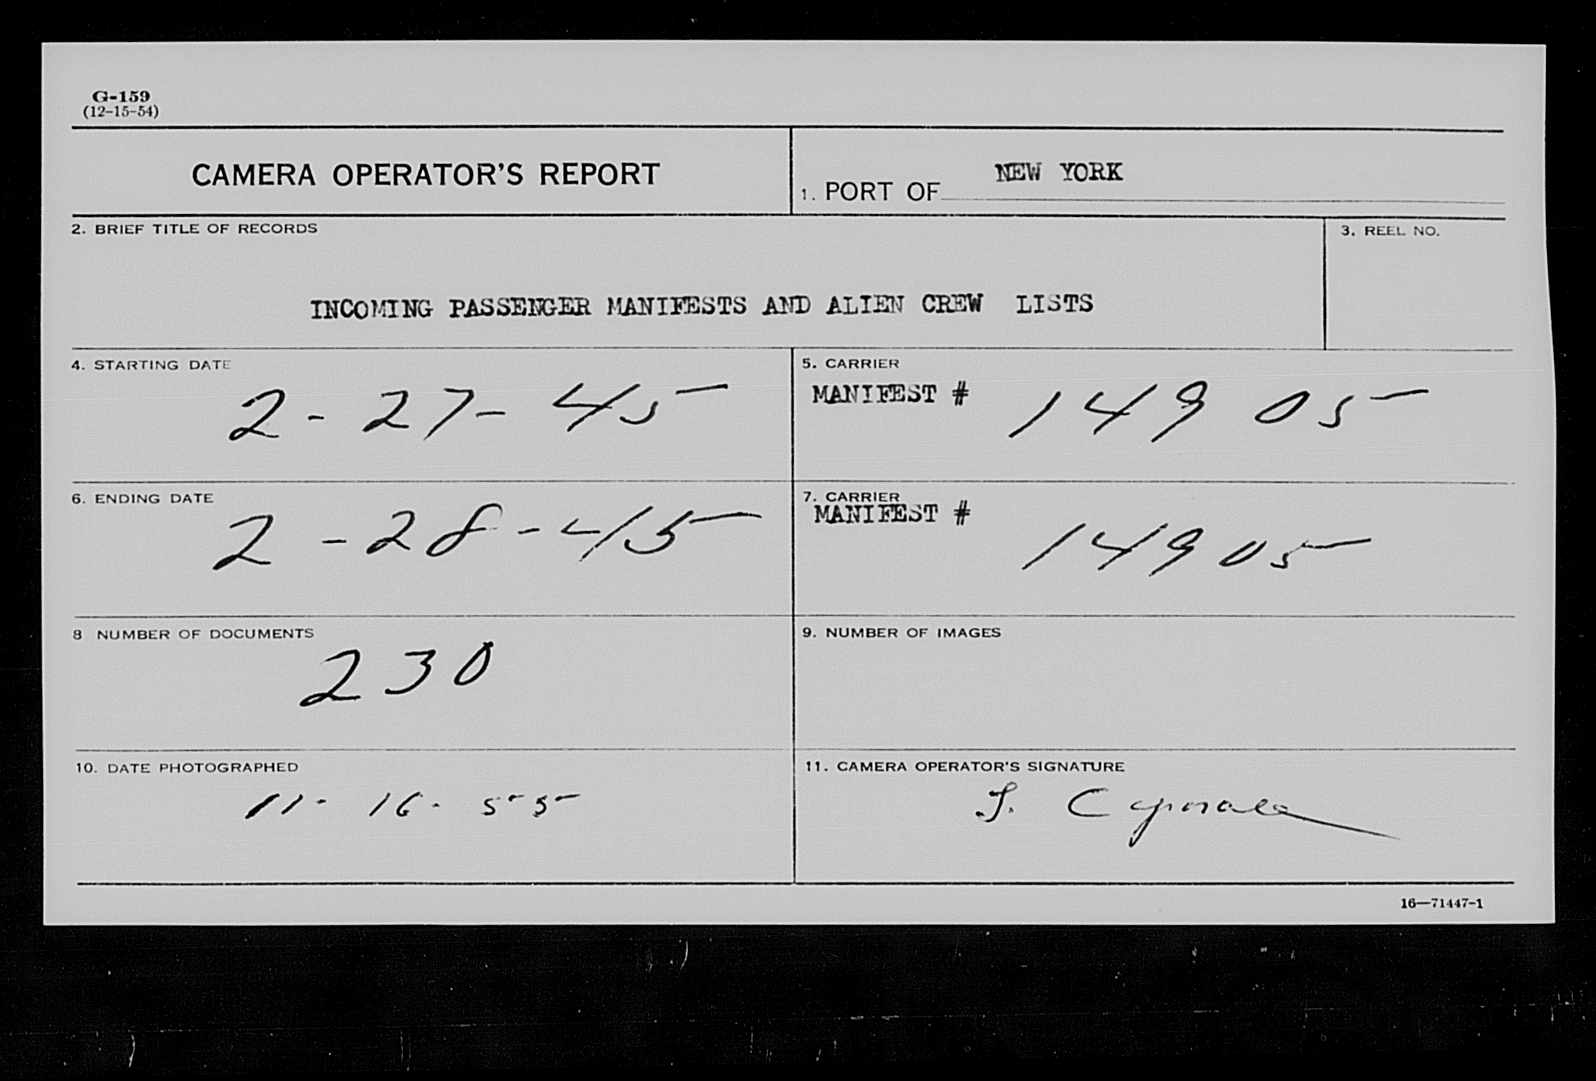 G-159
(12-15-54)
CAMERA OPERATOR'S REPORT
1. PORT OF NEW YORK
2. BRIEF TITLE OF RECORDS
3. REEL NO.
INCOMING PASSENGER MANIFESTS AND ALIEN CREW LISTS
4. STARTING DATE
2-27-45
5. CARRIER
MANIFEST # 14905
6. ENDING DATE
2-28-45
7. CARRIER
MANIFEST # 14905
8 NUMBER OF DOCUMENTS
230
9. NUMBER OF IMAGES
10. DATE PHOTOGRAPHED
11-16-55
11. CAMERA OPERATOR'S SIGNATURE
16—71447-1